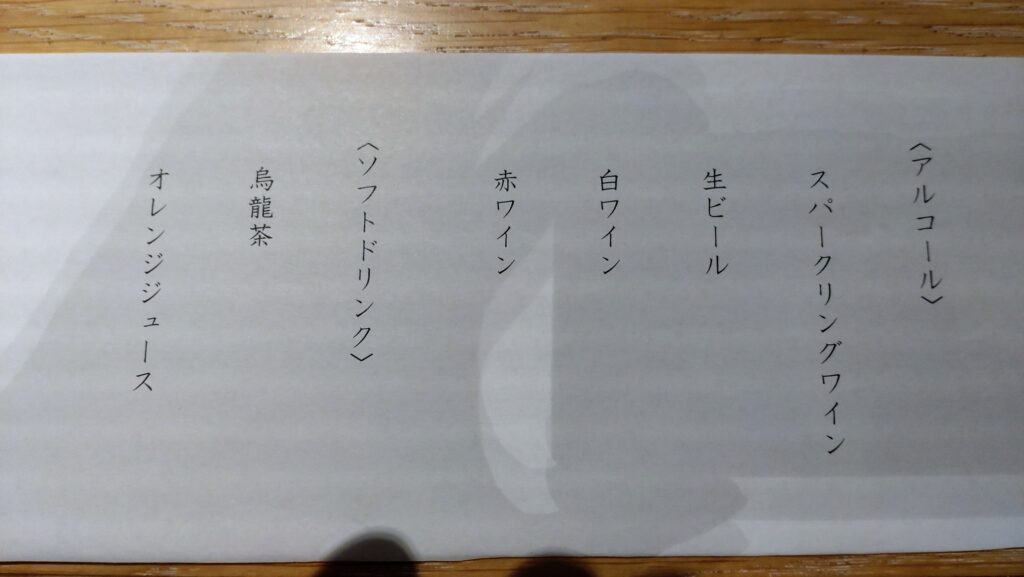 〈アルコール〉
スパークリングワイン
生ビール
白ワイン
赤ワイン
〈ソフトドリンク〉
烏龍茶
オレンジジュース